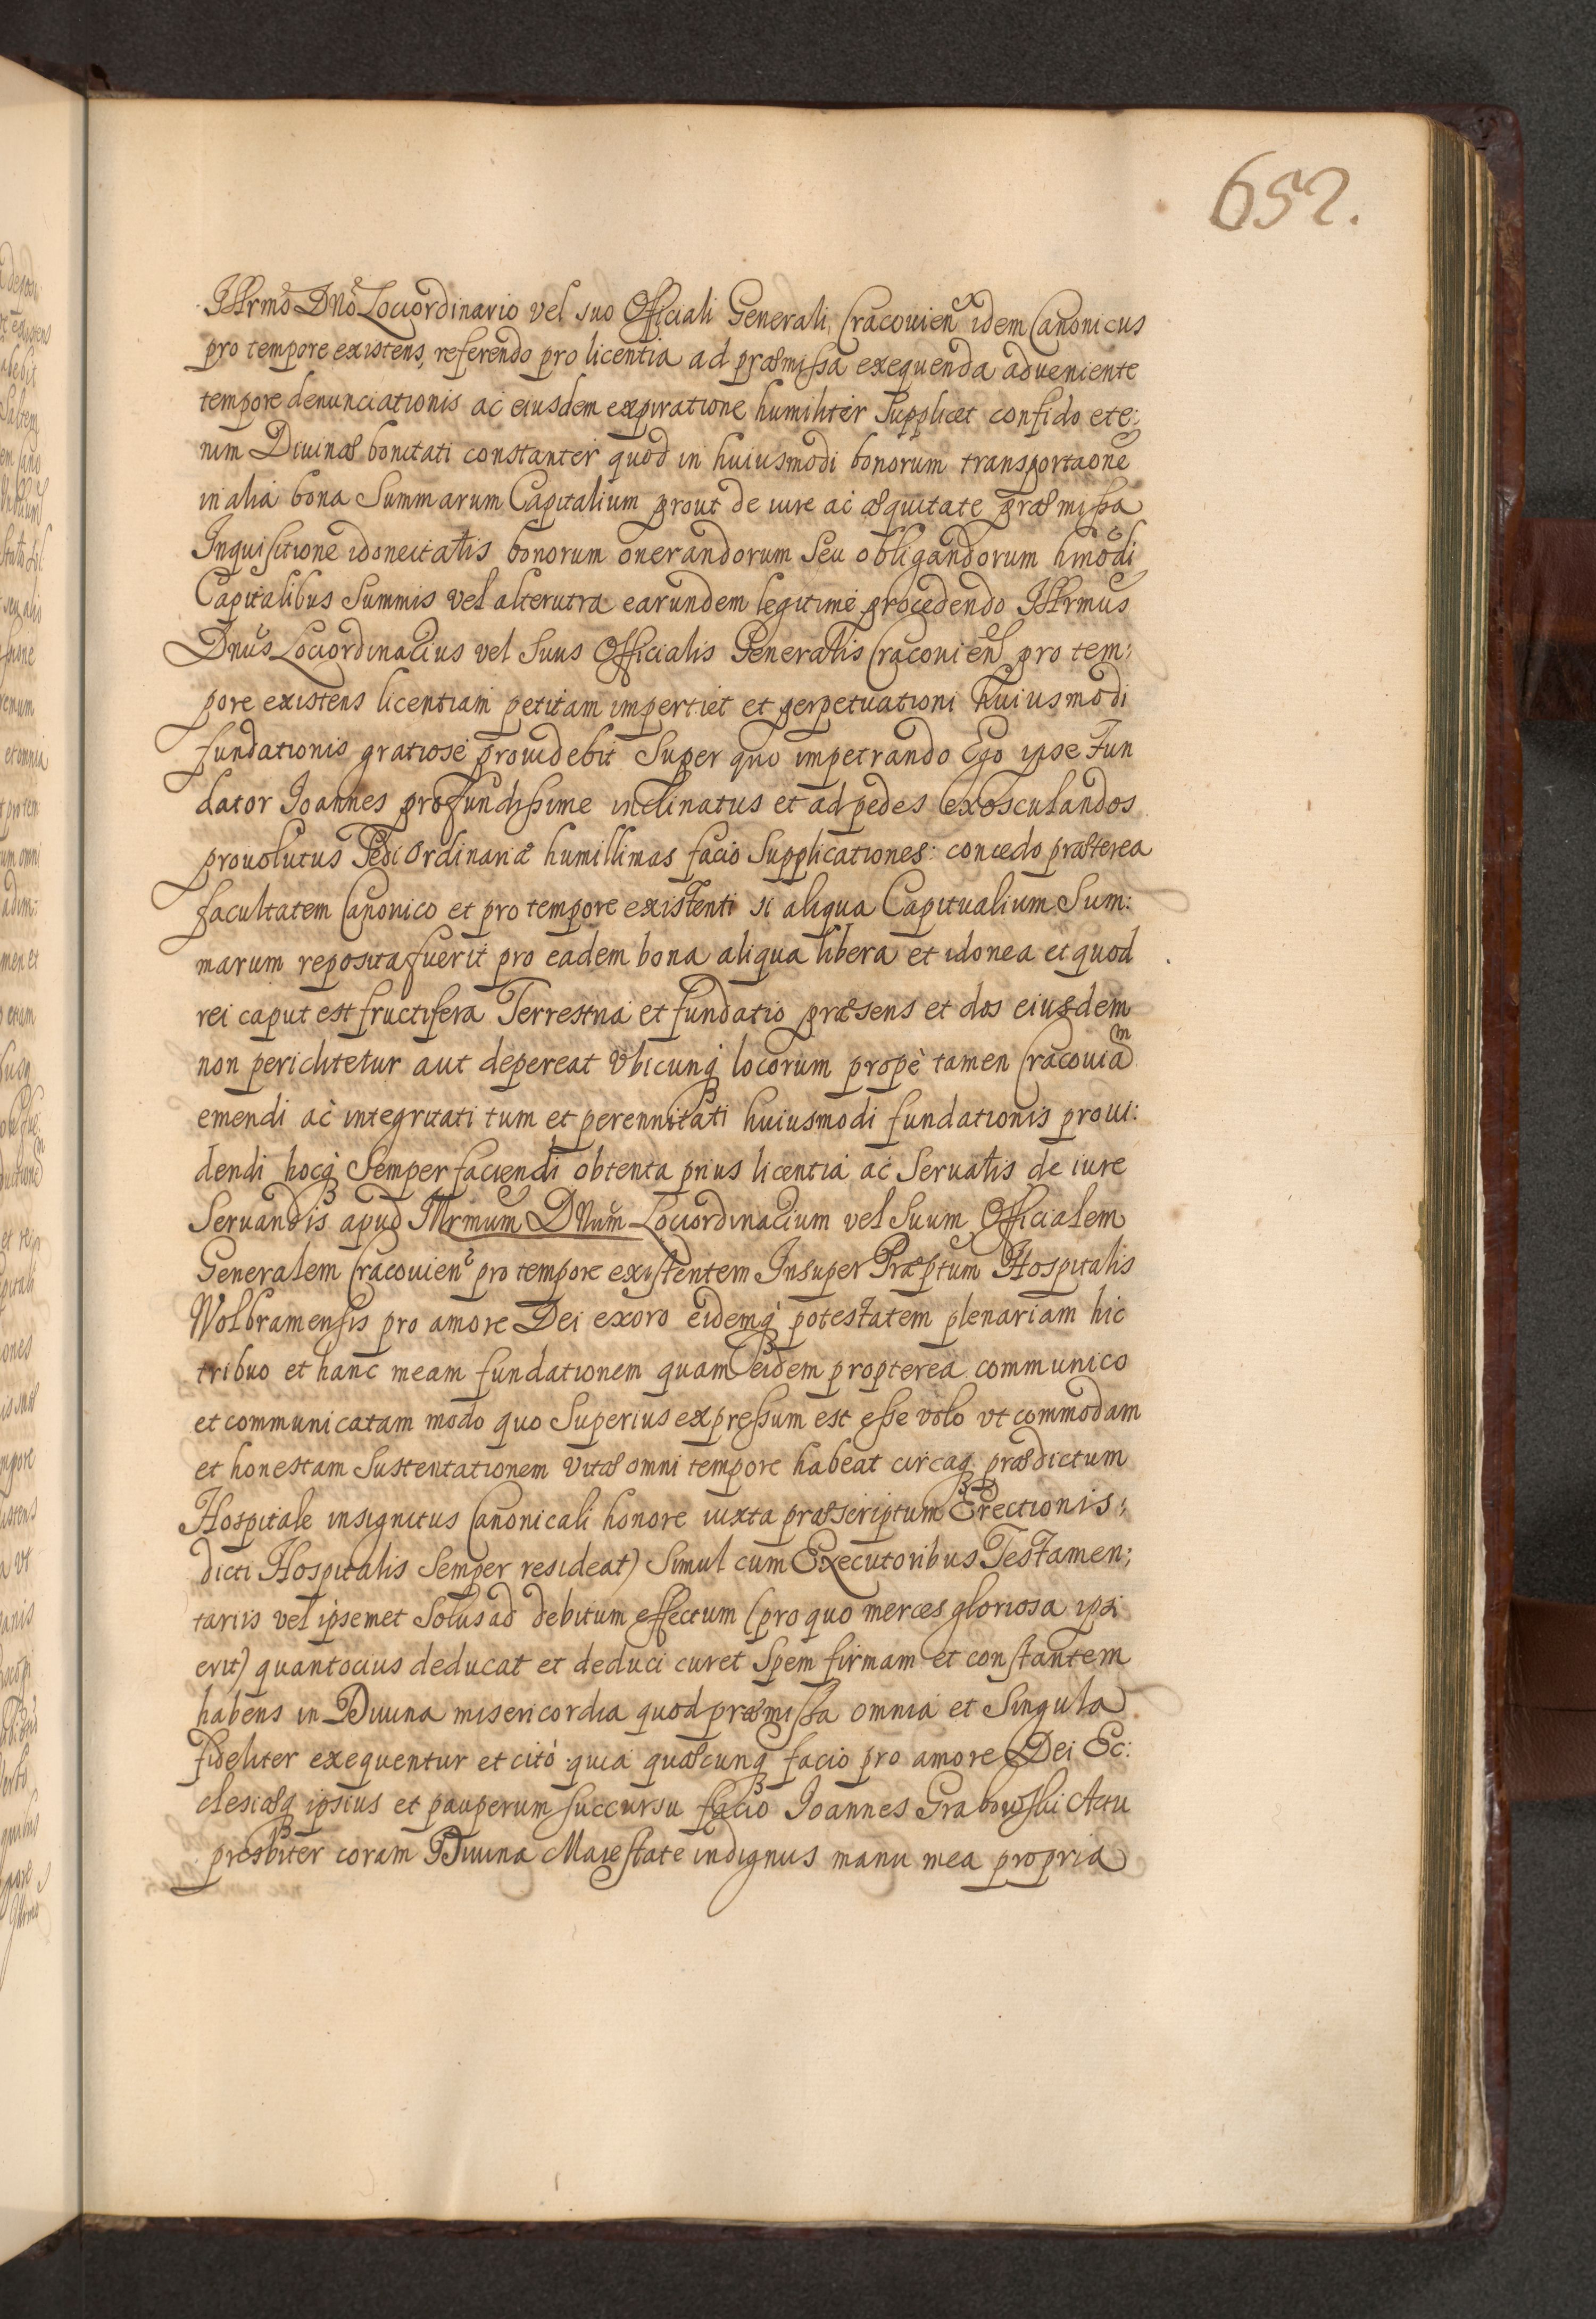 652.
Illrmo Dno Lociordinario vel suo Officiali Generali Cracouien idem Canonicus
pro tempore existens, referendo pro licentia ad præmissa exequenda adveniente
tempore denunciationis ac eiusdem expiratione humiliter supplicet confido ete:
nim Diuinæ bonitati constanter quod in huiusmodi bonorum transportaone
in alia bona Summarum Capitalium prout de iure ac æquitate præmissa
Inquisitione idoneitatis bonorum onerandorum seu obligandorum hmodi
Capitalibus Summis vel alterutra earundem legitime procedendo Illrmus
Dnus Lociordinarius vel Suus Officialis Generalis Cracouien pro tem:
pore existens licentiam petitam impertiet et perpetuationi huiusmodi
fundationis gratiosè prouidebit Super quo impetrando Ego ipse Fun
dator Joannes profundissime inclinatus et ad pedes exosculandos
prouolutus Sedi Ordinariæ humillimas facio Supplicationes: concedo præterea
facultatem Canonico et pro tempore existenti si aliqua Capitualium Sum:
marum reposita fuerit pro eadem bona aliqua libera et idonea et quod
rei caput est fructifera Terrestria et fundatio præsens et dos eiusdem
non periclitetur aut depereat Vbicunq locorum propè tamen Cracouiam
emendi ac integritati tum et perennitati huiusmodi fundationis proui:
dendi hocq Semper faciendi obtenta prius licentia ac Seruatis de iure
Seruandis apud Illrmum Dnum Lociordinarium vel Suum Officialem
Generalem Cracouien pro tempore existentem Insuper Præptum Hospitalis
Wolbramensis pro amore Dei exoro eidemq potestatem plenariam hic
tribuo et hanc meam fundationem quam eidem propterea communico
et communicatam modo quo Superius expressum est esse volo vt commodam
et honestam Sustentationem Vitæ omni tempore habeat circaq prædictum
Hospitale insignitus Canonicali honore iuxta præscriptum Erectionis:
dicti Hospitalis Semper resideat) Simul cum Executoribus Testamen:
tariis vel ipsemet Solus ad debitum effectum (pro quo merces gloriosa ipsi
erit) quantocius deducat et deduci curet Spem firmam et constantem
habens in Diuina misericordia quod præmissa omnia et Singula
fideliter exequentur et citò quia quæcunq facio pro amore Dei Ec:
clesiæq ipsius et pauperum succursu facio Joannes Grabowski Actu
presbiter coram Diuina Maiestate indignus manu mea propria